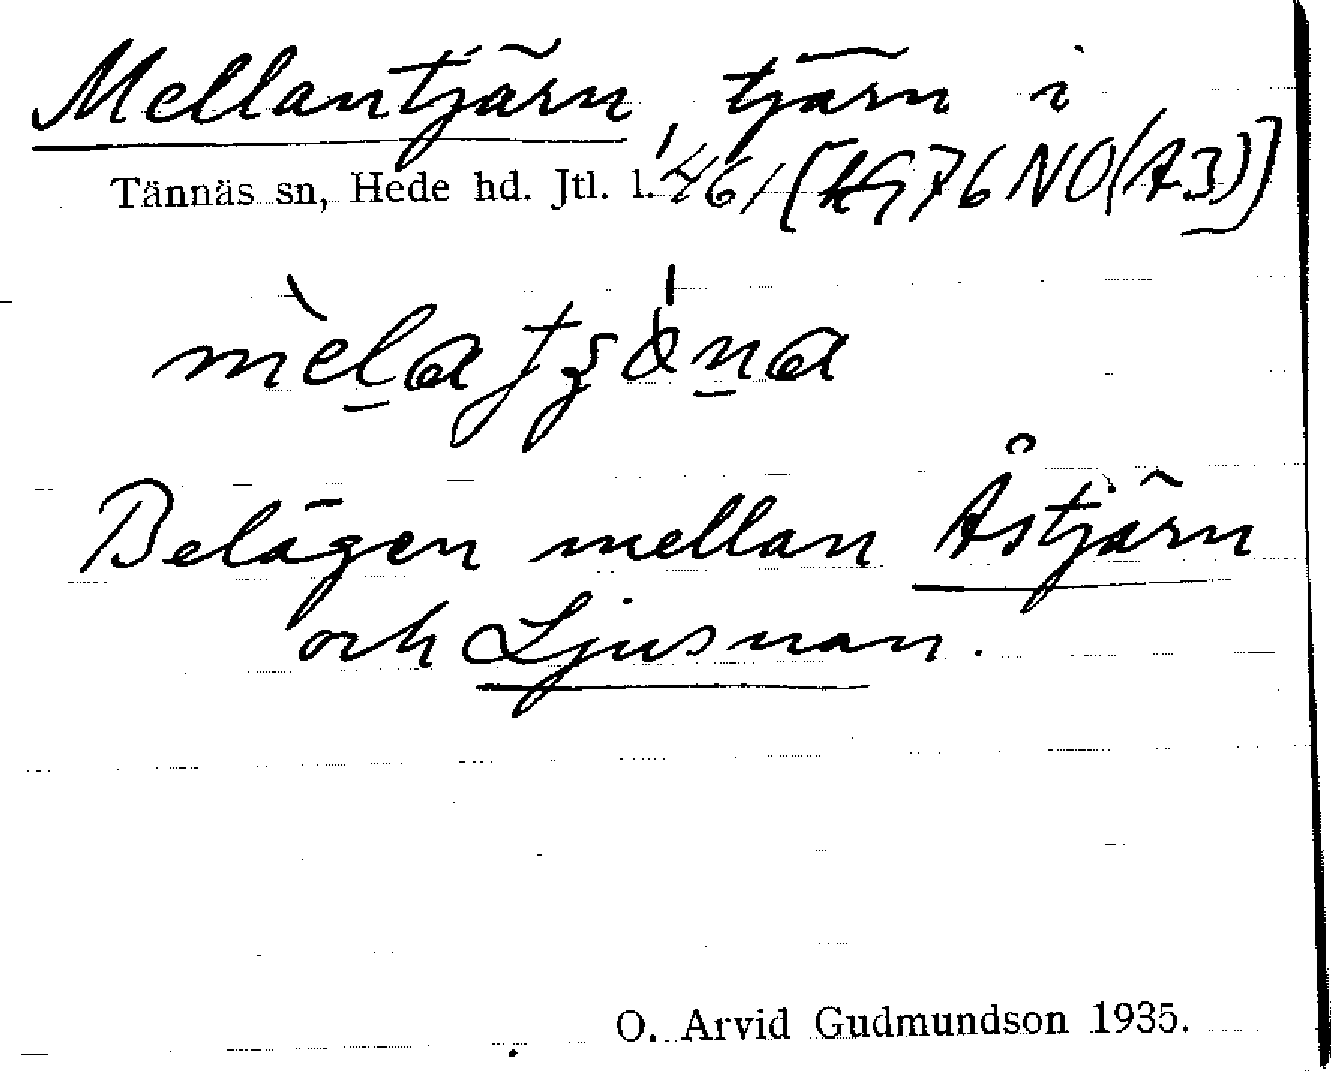 Mellantjärn, tjärn i
Tännäs sn, Hede hd. Jtl. l. 46/[KG 76 NO(A3)]
Belägen mellan Åstjärn
och Ljusnan.
O. Arvid Gudmundson 1935.